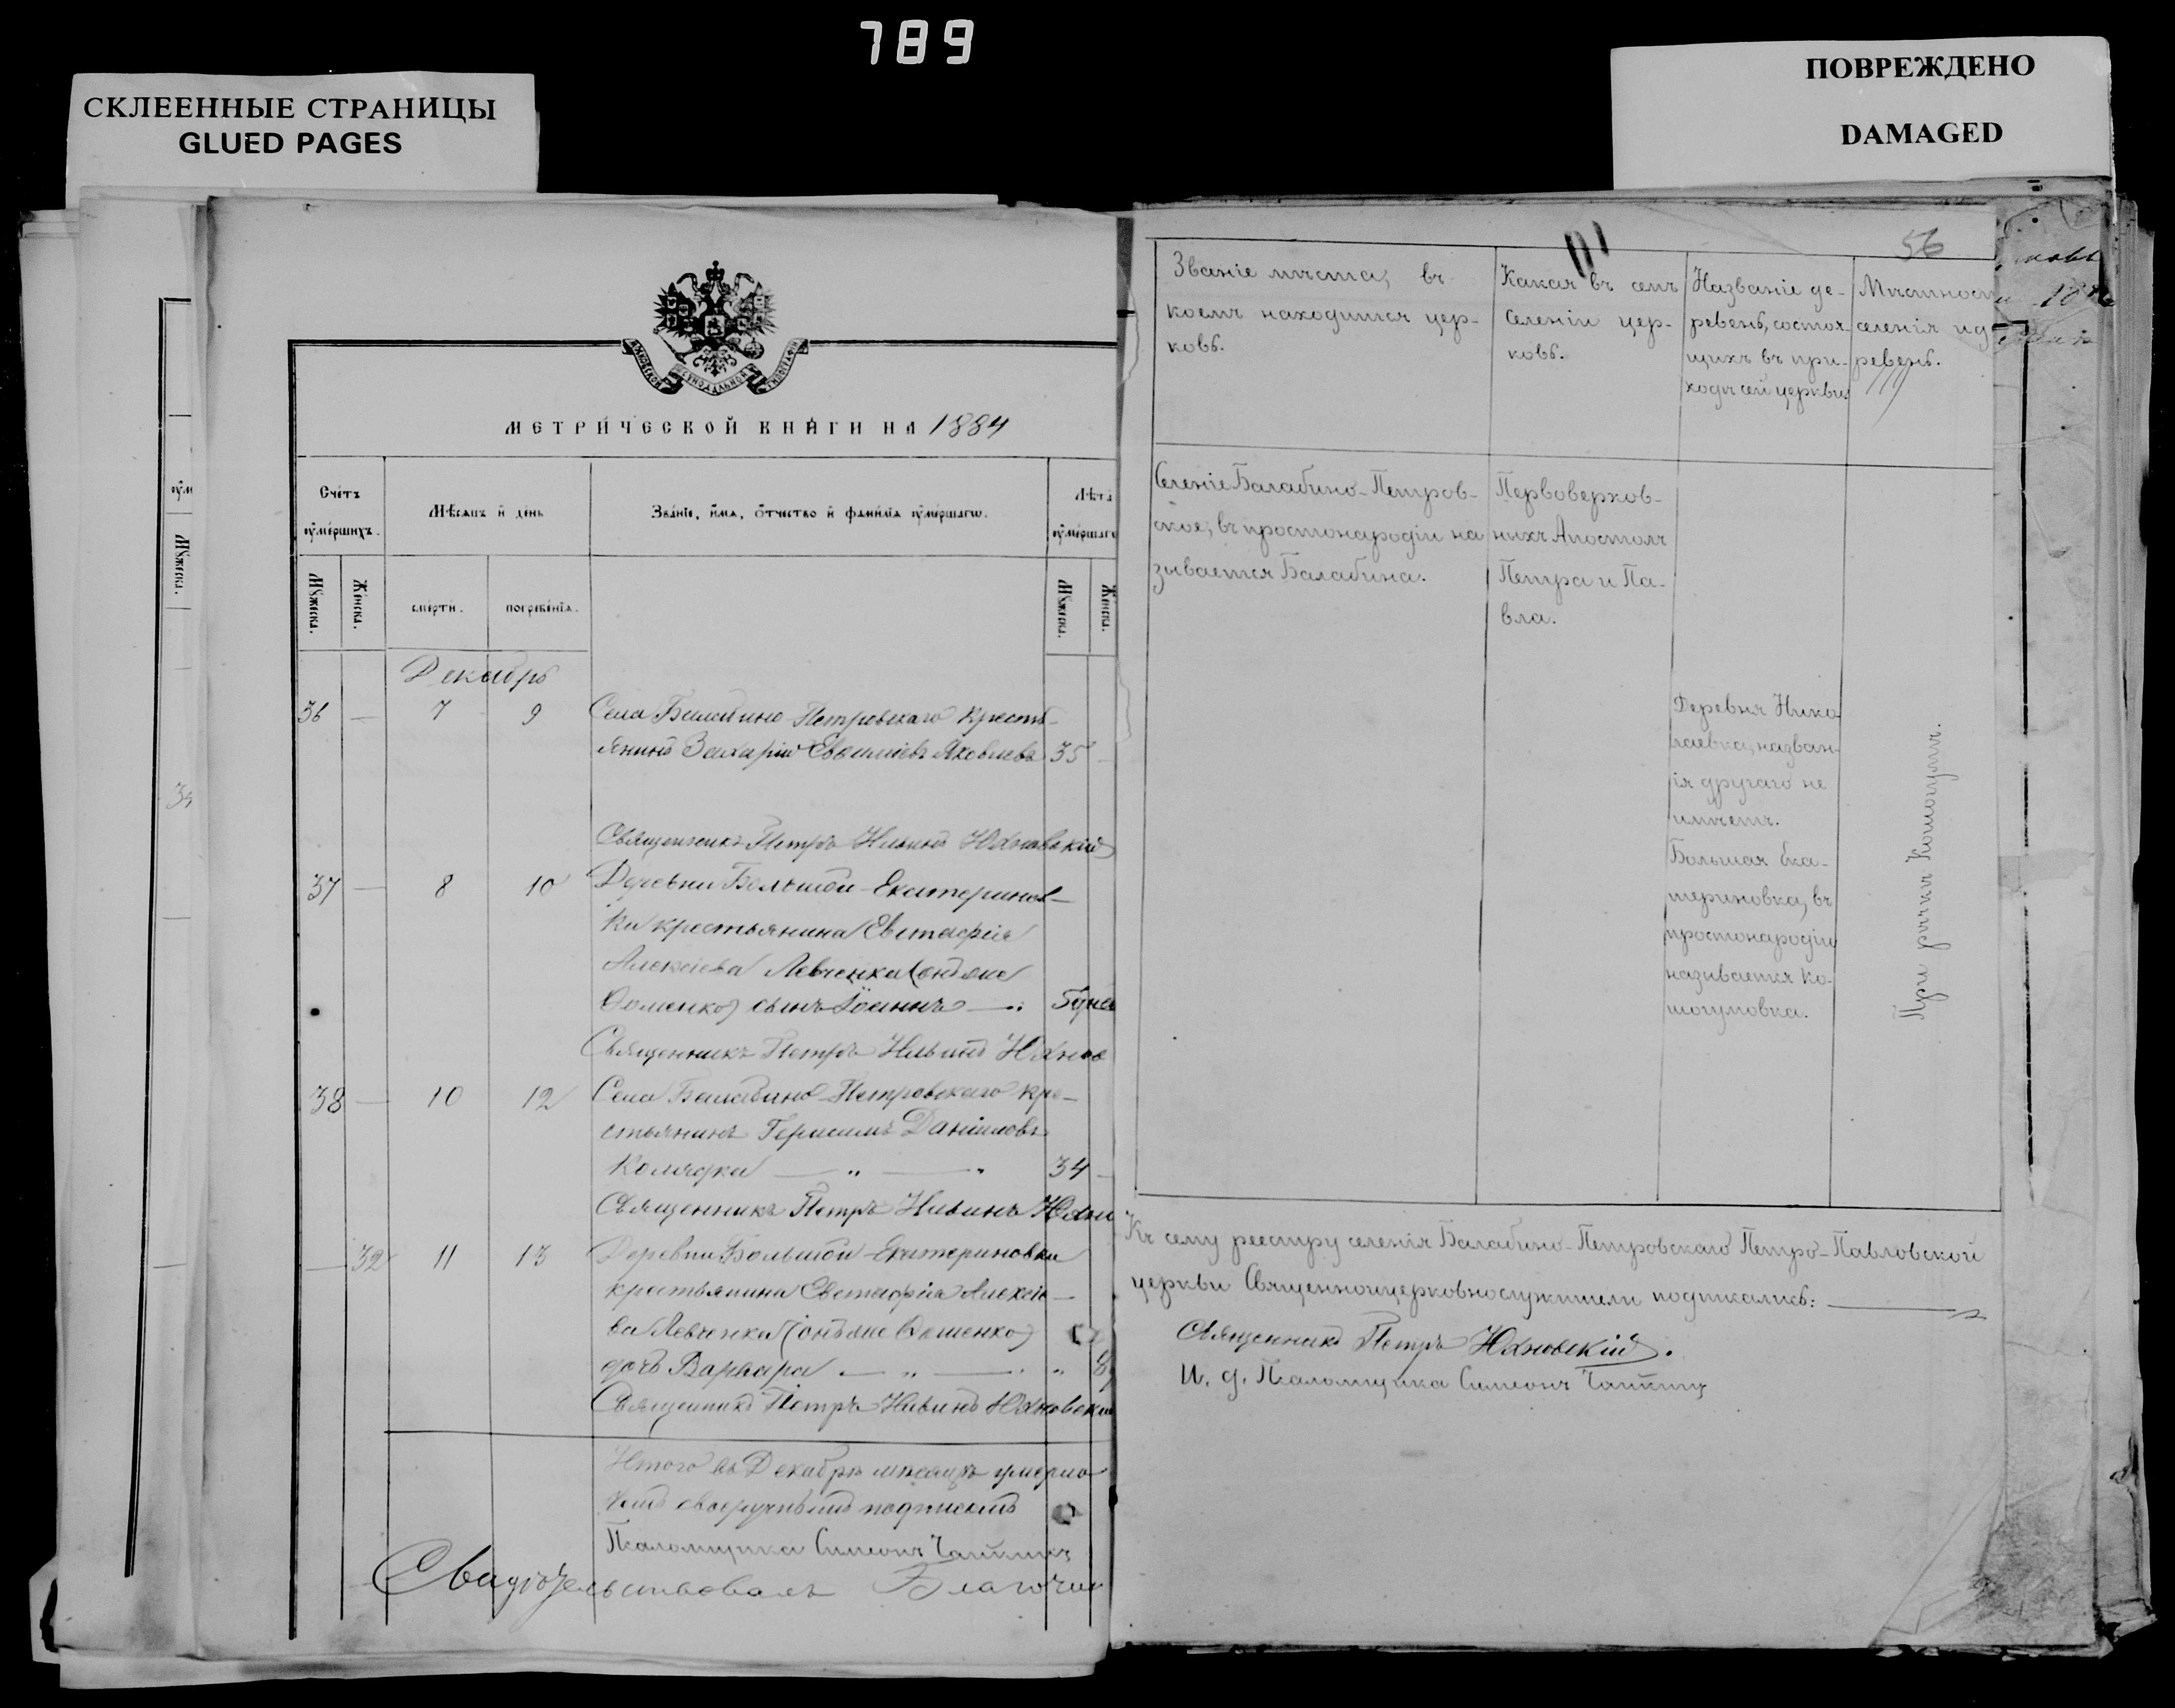 789
СКЛЕЕННЫЕ СТРАНИЦЫ
GLUED PAGES
ПОВРЕЖДЕНО
DAMAGED
МЕТРИЧЕСКОЙ КНИГИ НА 1884
Счетъ
умершихъ.
Мѣсяцъ и день
Званіе, имя, отчество и фамилія умершаго.
Лѣта
умершаго
Мужеска.
Женска.
смерти.
погребенія.
Мужеска.
Женска.
Декабрь
36 — 7 9 Села Балабино-Петровскаго Кресть-
янинъ Захарій Евсевіевъ Яковлевъ 35 —
Священникъ Петръ Ильинъ Юхновскій
37 — 8 10 Деревни Большой-Екатеринов-
ки крестьянина Евстафія
Алексіева Левченка (онъ же
Ѳоменко) сынъ Іоаннъ — 5 дне
Священникъ Петръ Ильинъ Юхнов
38 — 10 12 Села Балабино-Петровскаго кре-
стьянинъ Герасимъ Даніиловъ
Колядка — „ — „ 34 —
Священникъ Петръ Ильинъ Юхн
— 32 11 13 Деревни Большой-Екатериновки
крестьянина Евстафія Алексіе-
ва Левченка (онъ же Ѳоменко)
дочь Варвара — „ — „ 8
Священникъ Петръ Ильинъ Юхновскій
Итого въ Декабрѣ мѣсяцѣ умерло
подписомъ
Псаломщика Симеонъ
Свидѣтельствовалъ Благочин
56
Званіе мѣста, въ
коемъ находится цер-
ковь.
Какая въ семъ
селеніи цер-
ковь.
Названіе де-
ревень, состоя-
щихъ въ при-
ходѣ сей церкви
Мѣстност
селенія и д
ревень.
Селеніе Балабино-Петров-
ское, въ простонародіи на
зывается Балабина.
Первоверхов-
ныхъ Апостолъ
Петра и Па-
вла.
Деревня Нико
лаевка, назван-
ія другаго не
имѣетъ.
Большая Ека-
териновка, въ
простонародіи
называется Ко-
шогумовка.
При рѣчкѣ Кошогумѣ.
Къ сему реестру селенія Балабино-Петровскаго Петро-Павловской
церкви Священноицерковнослужители подписались:
Священникъ Петръ Юхновскій.
И. д. Псаломщика Симеонъ